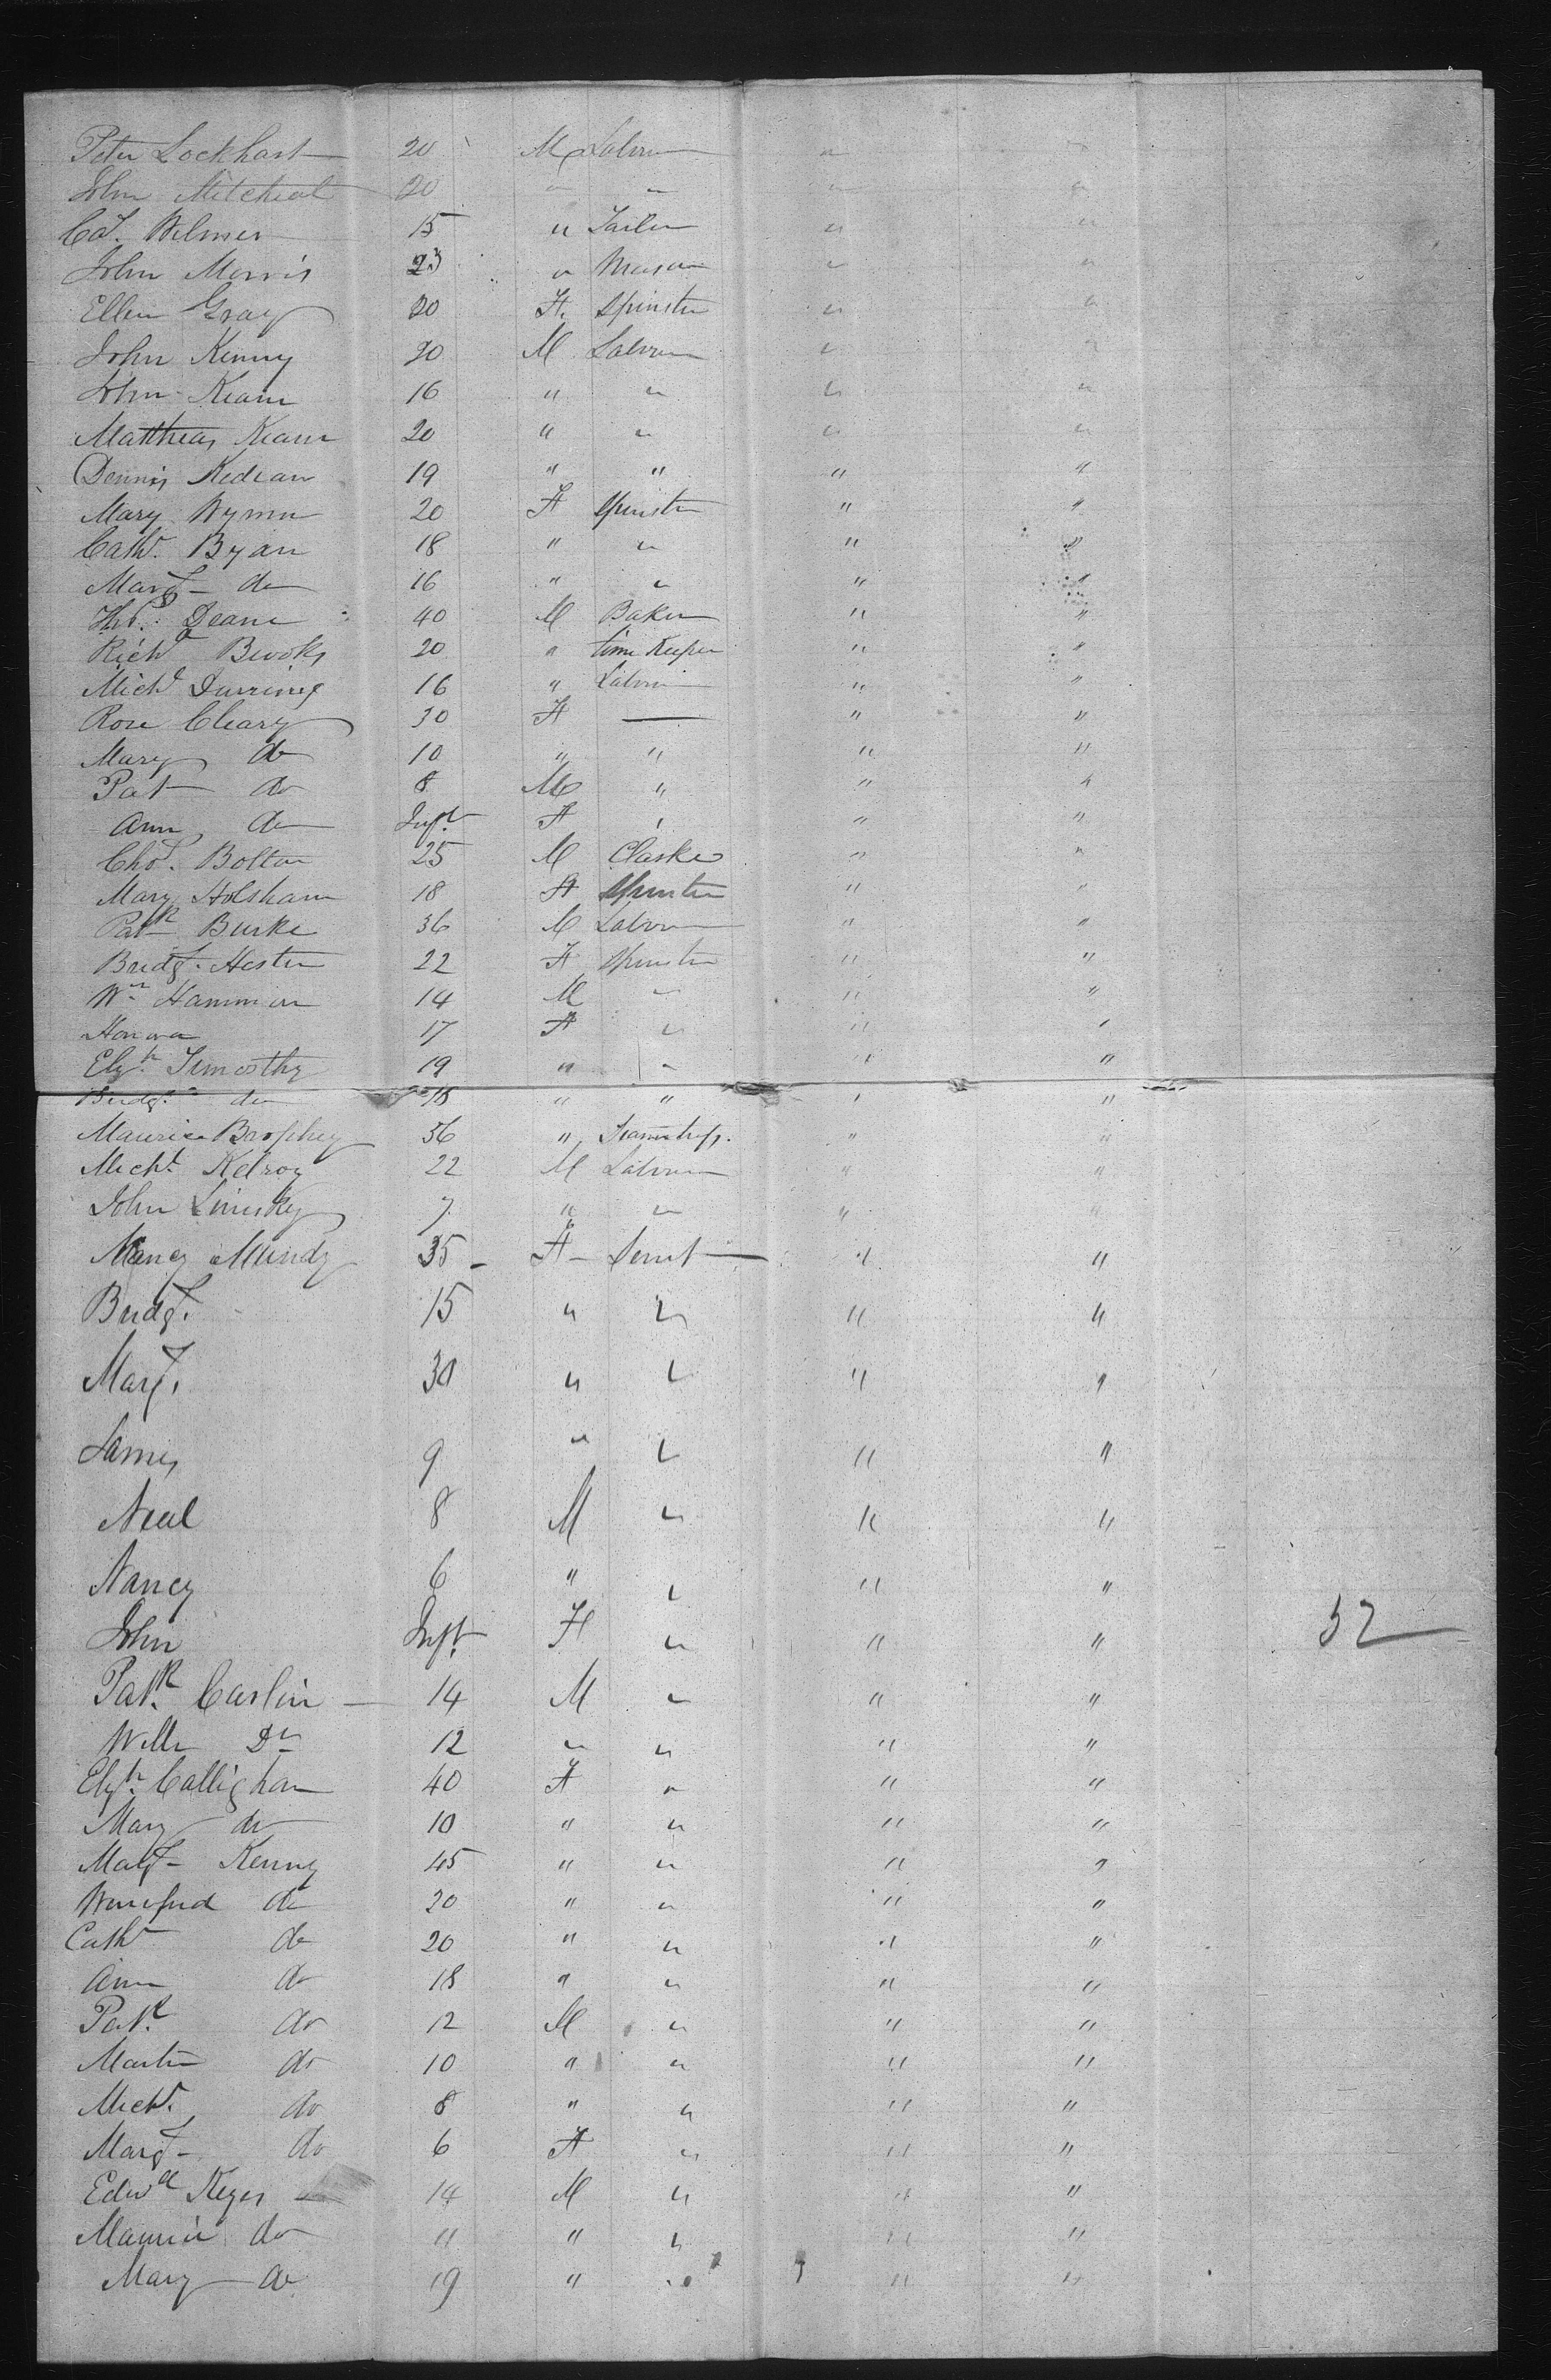 Peter Lockhart 20 M Labourer " "
John Mitcheal 20 " " " "
Cd. Wilmer 15 " Tailor " "
John Morris 23 " Mason " "
Ellen Gray 20 F. Spinster " "
John Kenny 20 M Labourer " "
John Keane 16 " " " "
Matthias Keane 20 " " " "
Dennis Kedean 19 " " " "
Mary Wymn 20 F Spinster " "
Cathe. Byan 18 " " " "
Margt do 16 " " " "
Thos. Deane 40 M Baker " "
Richd Brooks 20 " time Keeper " "
Michl 16 " Labourer " "
Rose Cleary 30 F — " "
Mary do 10 " " " "
Pat do 8 M " " "
Ann do Inft F " " "
Chs. Bolton 25 M Clarke " "
Mary Holsham 18 F Spinster " "
Patk Burke 36 M Labourer " "
Bridgt. Hester 22 F Spinster " "
Wm Hammon 14 M " " "
Honora 17 F " " "
Elizh. Timothy 19 " " " "
Bridgt. do 18 " " " "
Maurice Brophey 36 " " "
Michl. Kelroy 22 M Labourer " "
John Linisky 7 " " " "
Nancy Mundy 35 - F - Servt " "
Bridgt. 15 " " " "
Margt. 30 " " " "
James 9 " " " "
Neal 8 M " " "
Nancy 6 " " " "
John Inft. F " " " 52
Patk. Carlin 14 M " " "
Willm Do 12 " " " "
Elizh. Callighan 40 F " " "
Mary do 10 " " " "
Margt - Kenny 45 " " " "
Winefred do 20 " " " "
Cathe do 20 " " " "
Ann do 18 " " " "
Patk. do 12 M " " "
Martin do 10 " " " "
Michl. do 8 " " " "
Margt - do 6 F " " "
Edwd Keyes 14 M " " "
Maurice do 11 " " " "
Mary do 19 " " " "